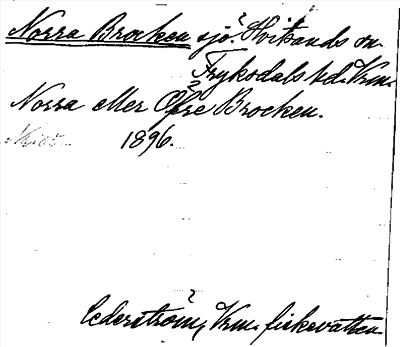 Norra Brocken sjö. Hvitsands sn.
Frykedals hd. Vrm.
Norra eller Öfre Brocken.
1896.
Cederström, Vrm. fiskevatten